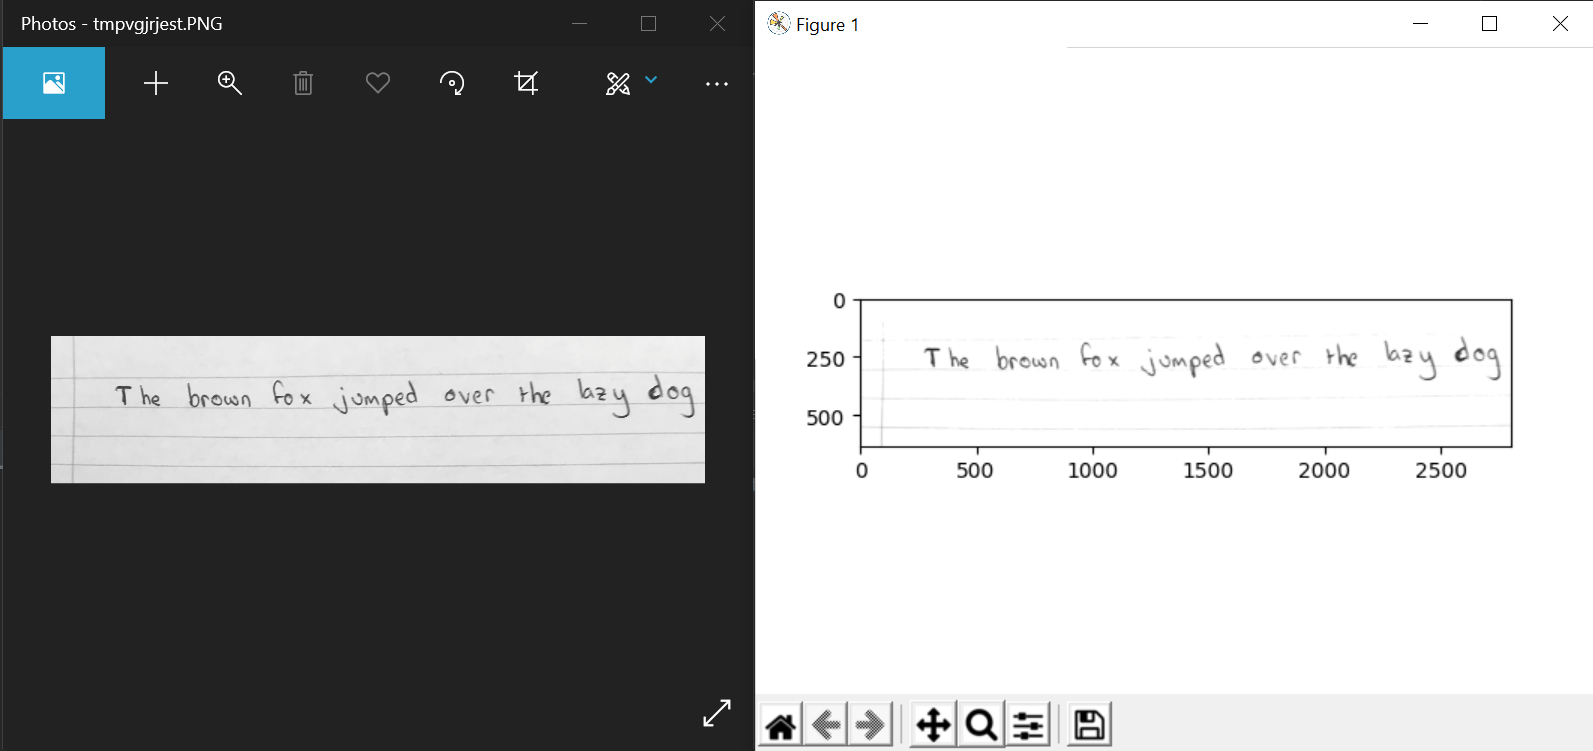 Photos - tmpvgjrjest.PNG
The brown fox jumped over the lazy dog
Figure 1
0
250
500
The brown fox jumped over the lazy dog
0 500 1000 1500 2000 2500